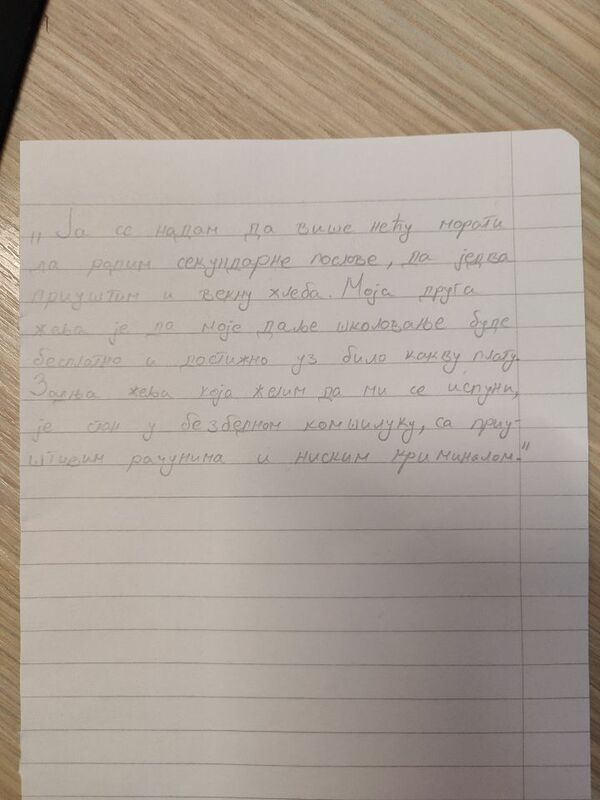 „Ја се надам да више нећу морати
да радим секундарне послове, да једва
приуштим и векну хлеба. Моја друга
жеља је да моје даље школовање буде
бесплатно и достижно уз било какву плату.
Задња жеља која желим да ми се испуни,
је стан у безбедном комшилуку, са приу-
штивим рачунима и ниским криминалом."